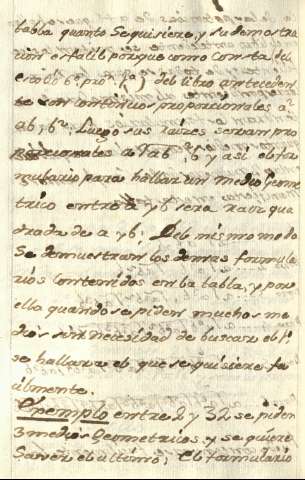 tabla quanto se quisiere, y su demostra
cion està lib porque como consta del
escol. 6ª. prop. (5ª) del libro anteceden
te son continuos proporcionales a²
ab, b². Luego sus raizes seran pro
porcionales a √ab b y asi el for
mulario para hallar un medio Geome
trico entre a y b sera raiz qua
drada de a y b; Del mismo modo
se demuestran los demas formula
rios contenidos en la tabla, y por
ello quando se piden muchos me
dios sin necesidad de buscar el 1º
se hallarà el que se quisiere fa
cilmente.
Exemplo entre 2 y 32 se piden
3 medios Geometricos y se quiere
Saver el ultimo; El formulario